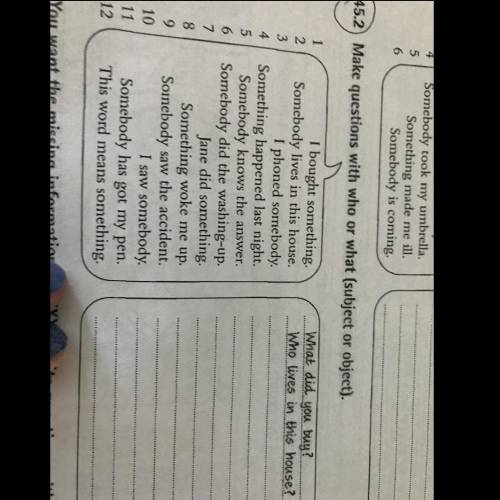 4
Somebody took my umbrella.
5 Something made me ill.
6 Somebody is coming.
45.2 Make questions with who or what (subject or object).
1 I bought something. What did you buy?
2 Somebody lives in this house. Who lives in this house?
3 I phoned somebody.
4 Something happened last night.
5 Somebody knows the answer.
6 Somebody did the washing-up.
7 Jane did something.
8 Something woke me up.
9 Somebody saw the accident.
10 I saw somebody.
11 Somebody has got my pen.
12 This word means something.
You want the missing information